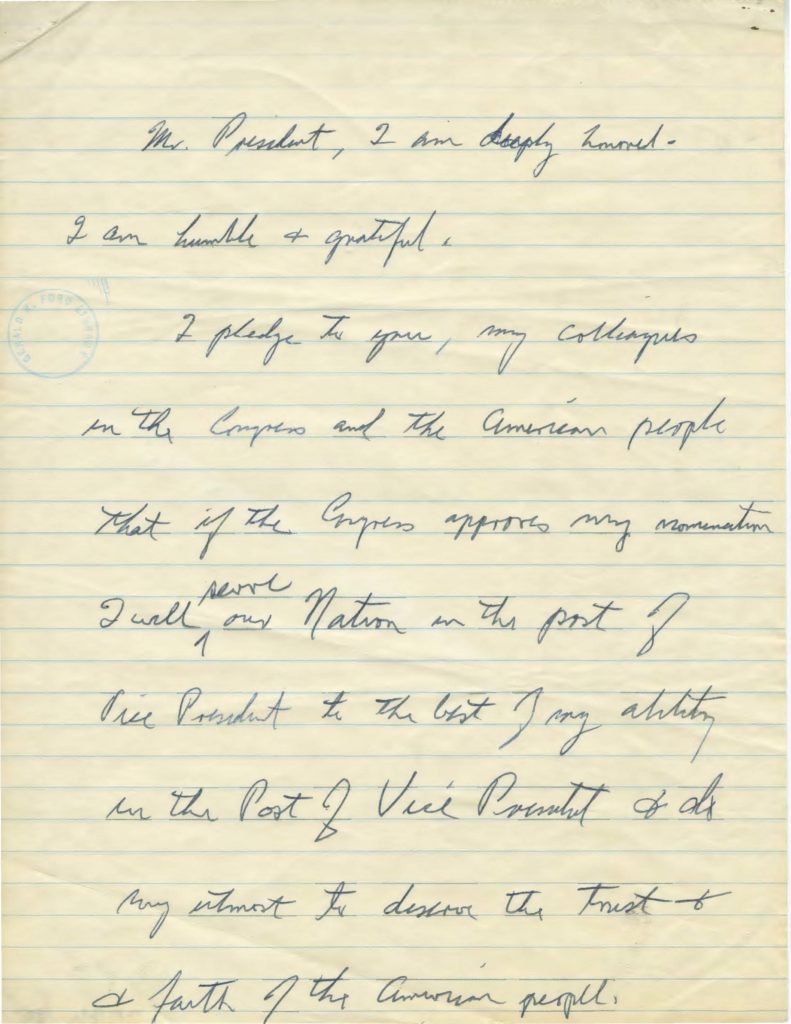 Mr. President, I am deeply honored -
I am humble & grateful.
GERALD R. FORD LIBRARY
I pledge to you, my colleagues
in the Congress and the American people
that if the Congress approves my nomination
serve
I will ^ our Nation in the post of
Vice President to the best of my ability
in the Post of Vice President & do
my utmost to deserve the trust &
& faith of the American people.